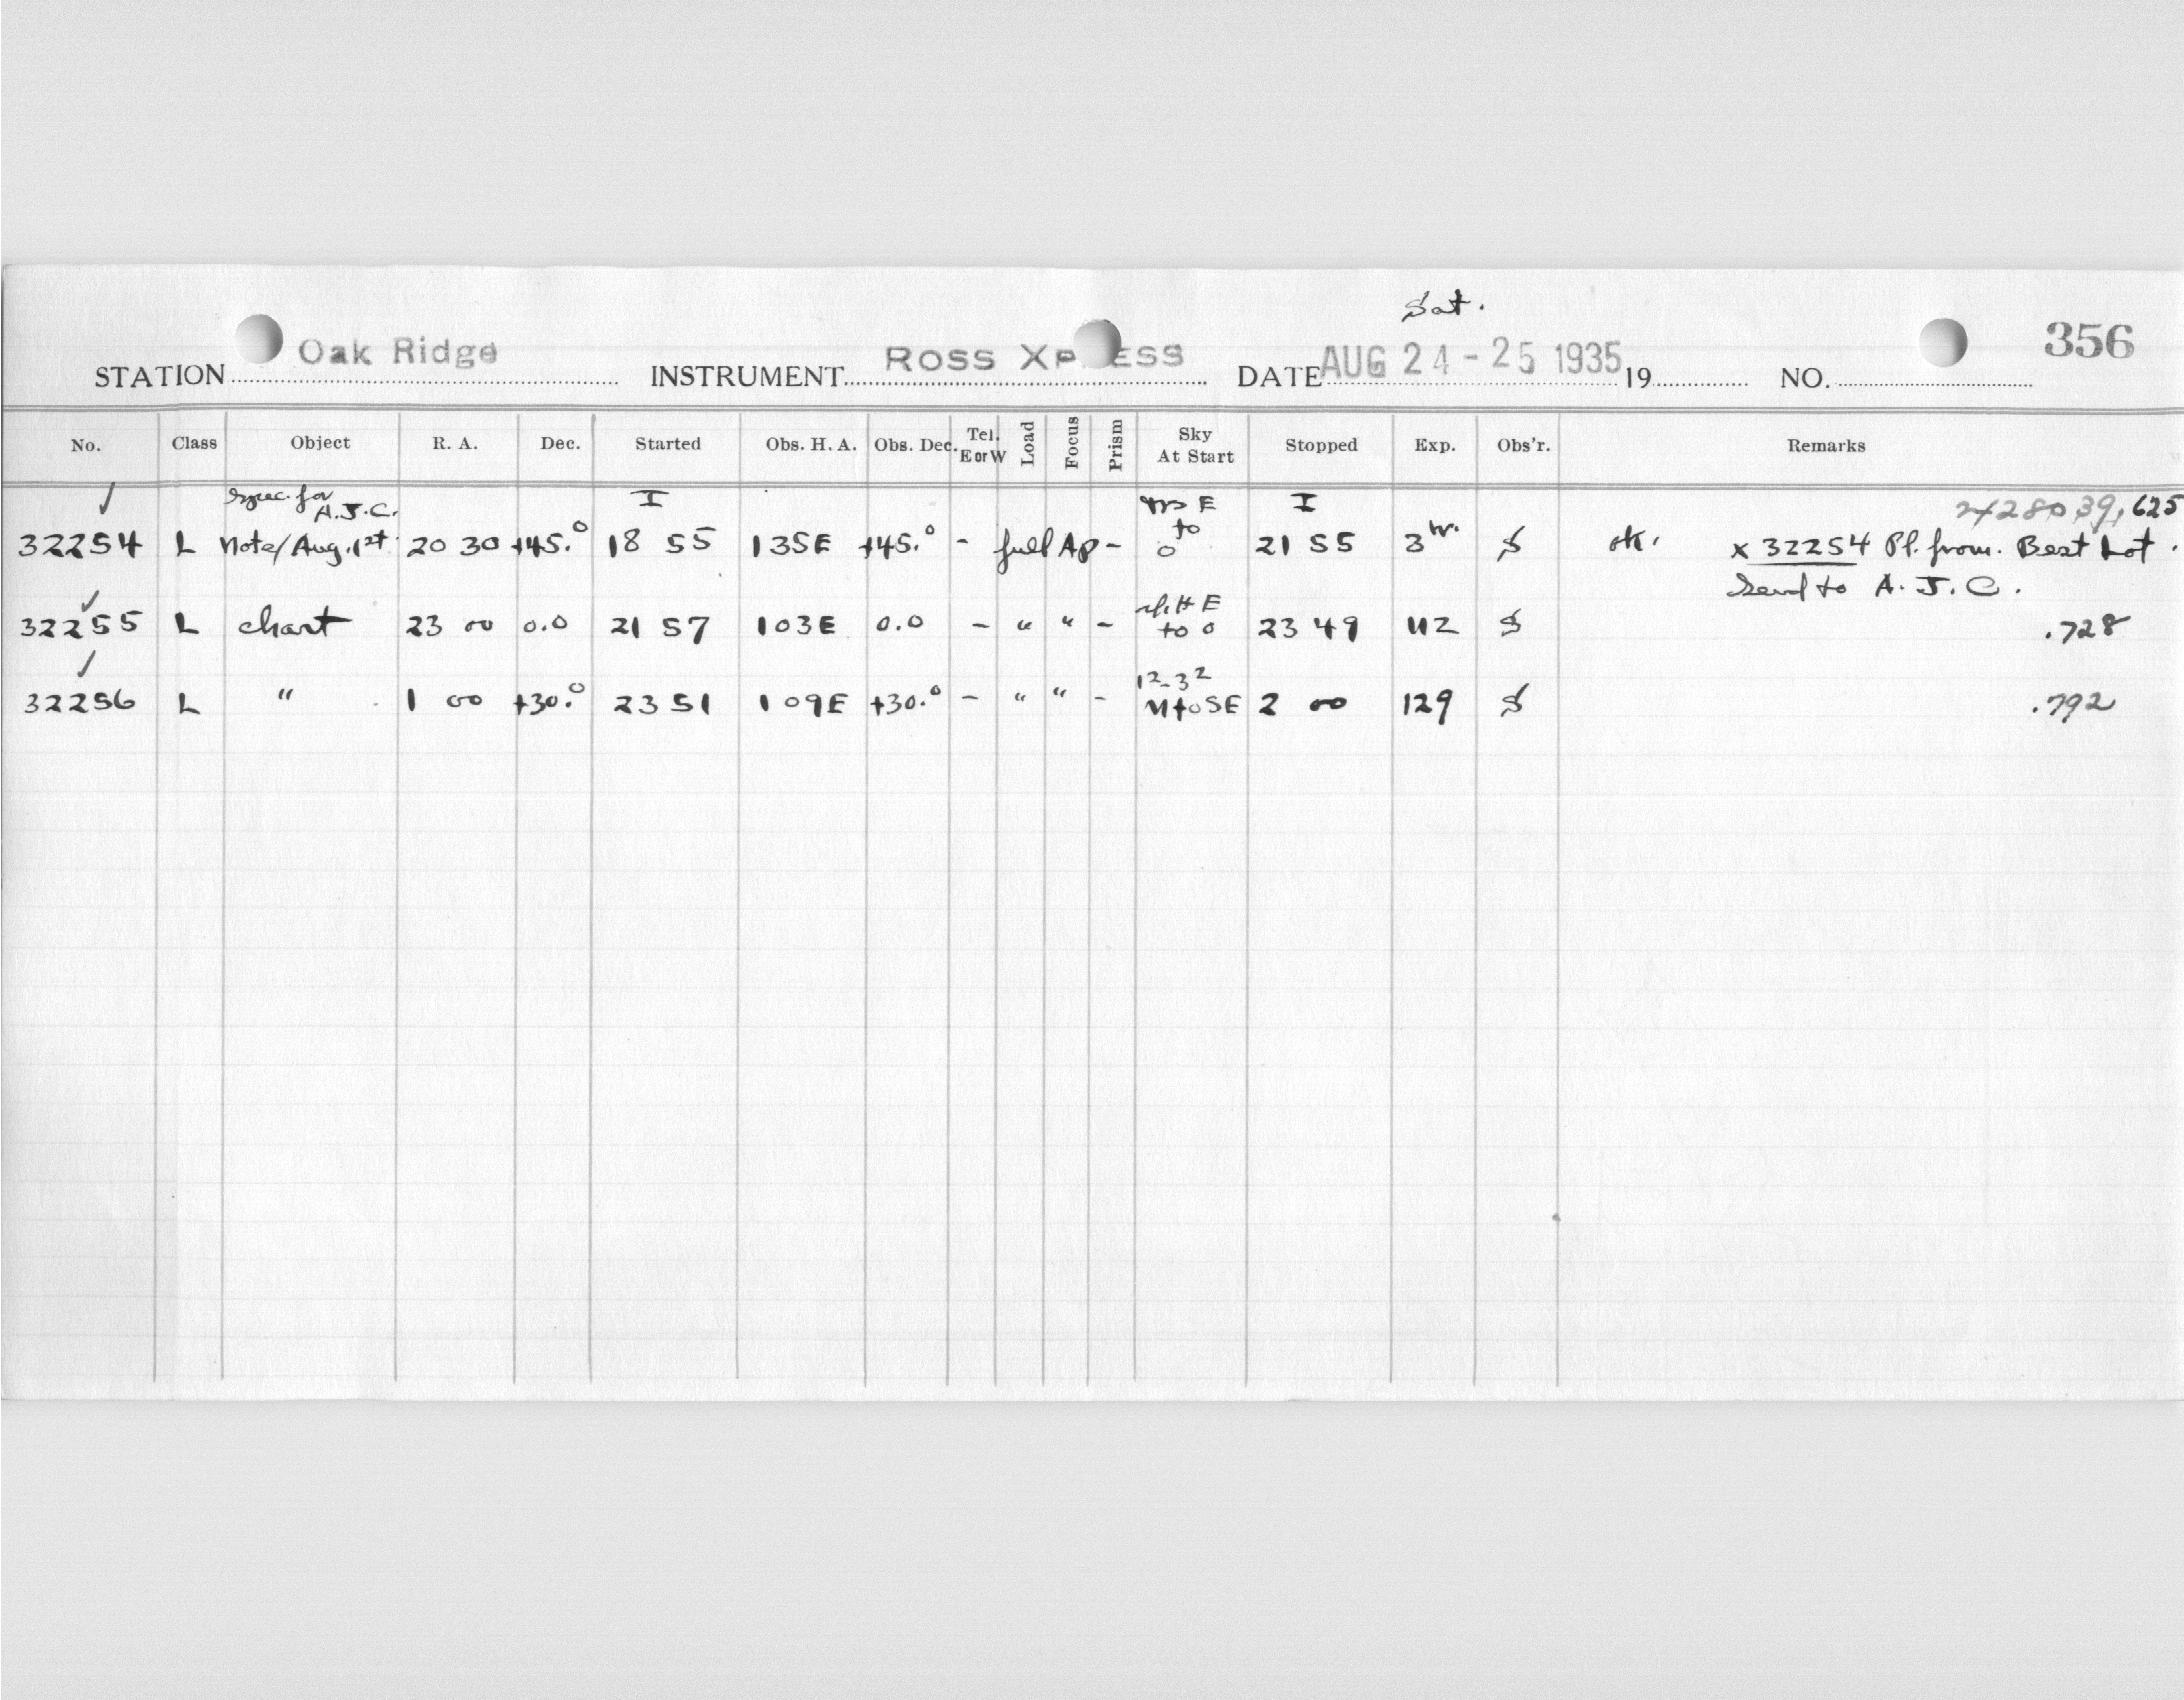 Sat.
STATION Oak Ridge INSTRUMENT ROSS XPRESS DATE AUG 24-25 1935 19 NO. 356
No. Class Object R. A. Dec. Started Obs. H. A. Obs. Dec. Tel. E or W Load Focus Prism Sky At Start Stopped Exp. Obs'r. Remarks
spec. for A.J.C. I E I 2428039,625
32254 L Note/Aug. 1st 20 30 +45.° 18 55 135E +45.° - full Ap - to 0 21 55 3 hr. S ok. x 32254 Pl. from Best Lot.
Send to A. J. C.
32255 L chart 23 00 0.0 21 57 103E 0.0 - " " - E to 0 23 49 112 S .728
32256 L " 1 00 +30.° 23 51 109E +30.° - " " - 12-32 N to SE 2 00 129 S .792